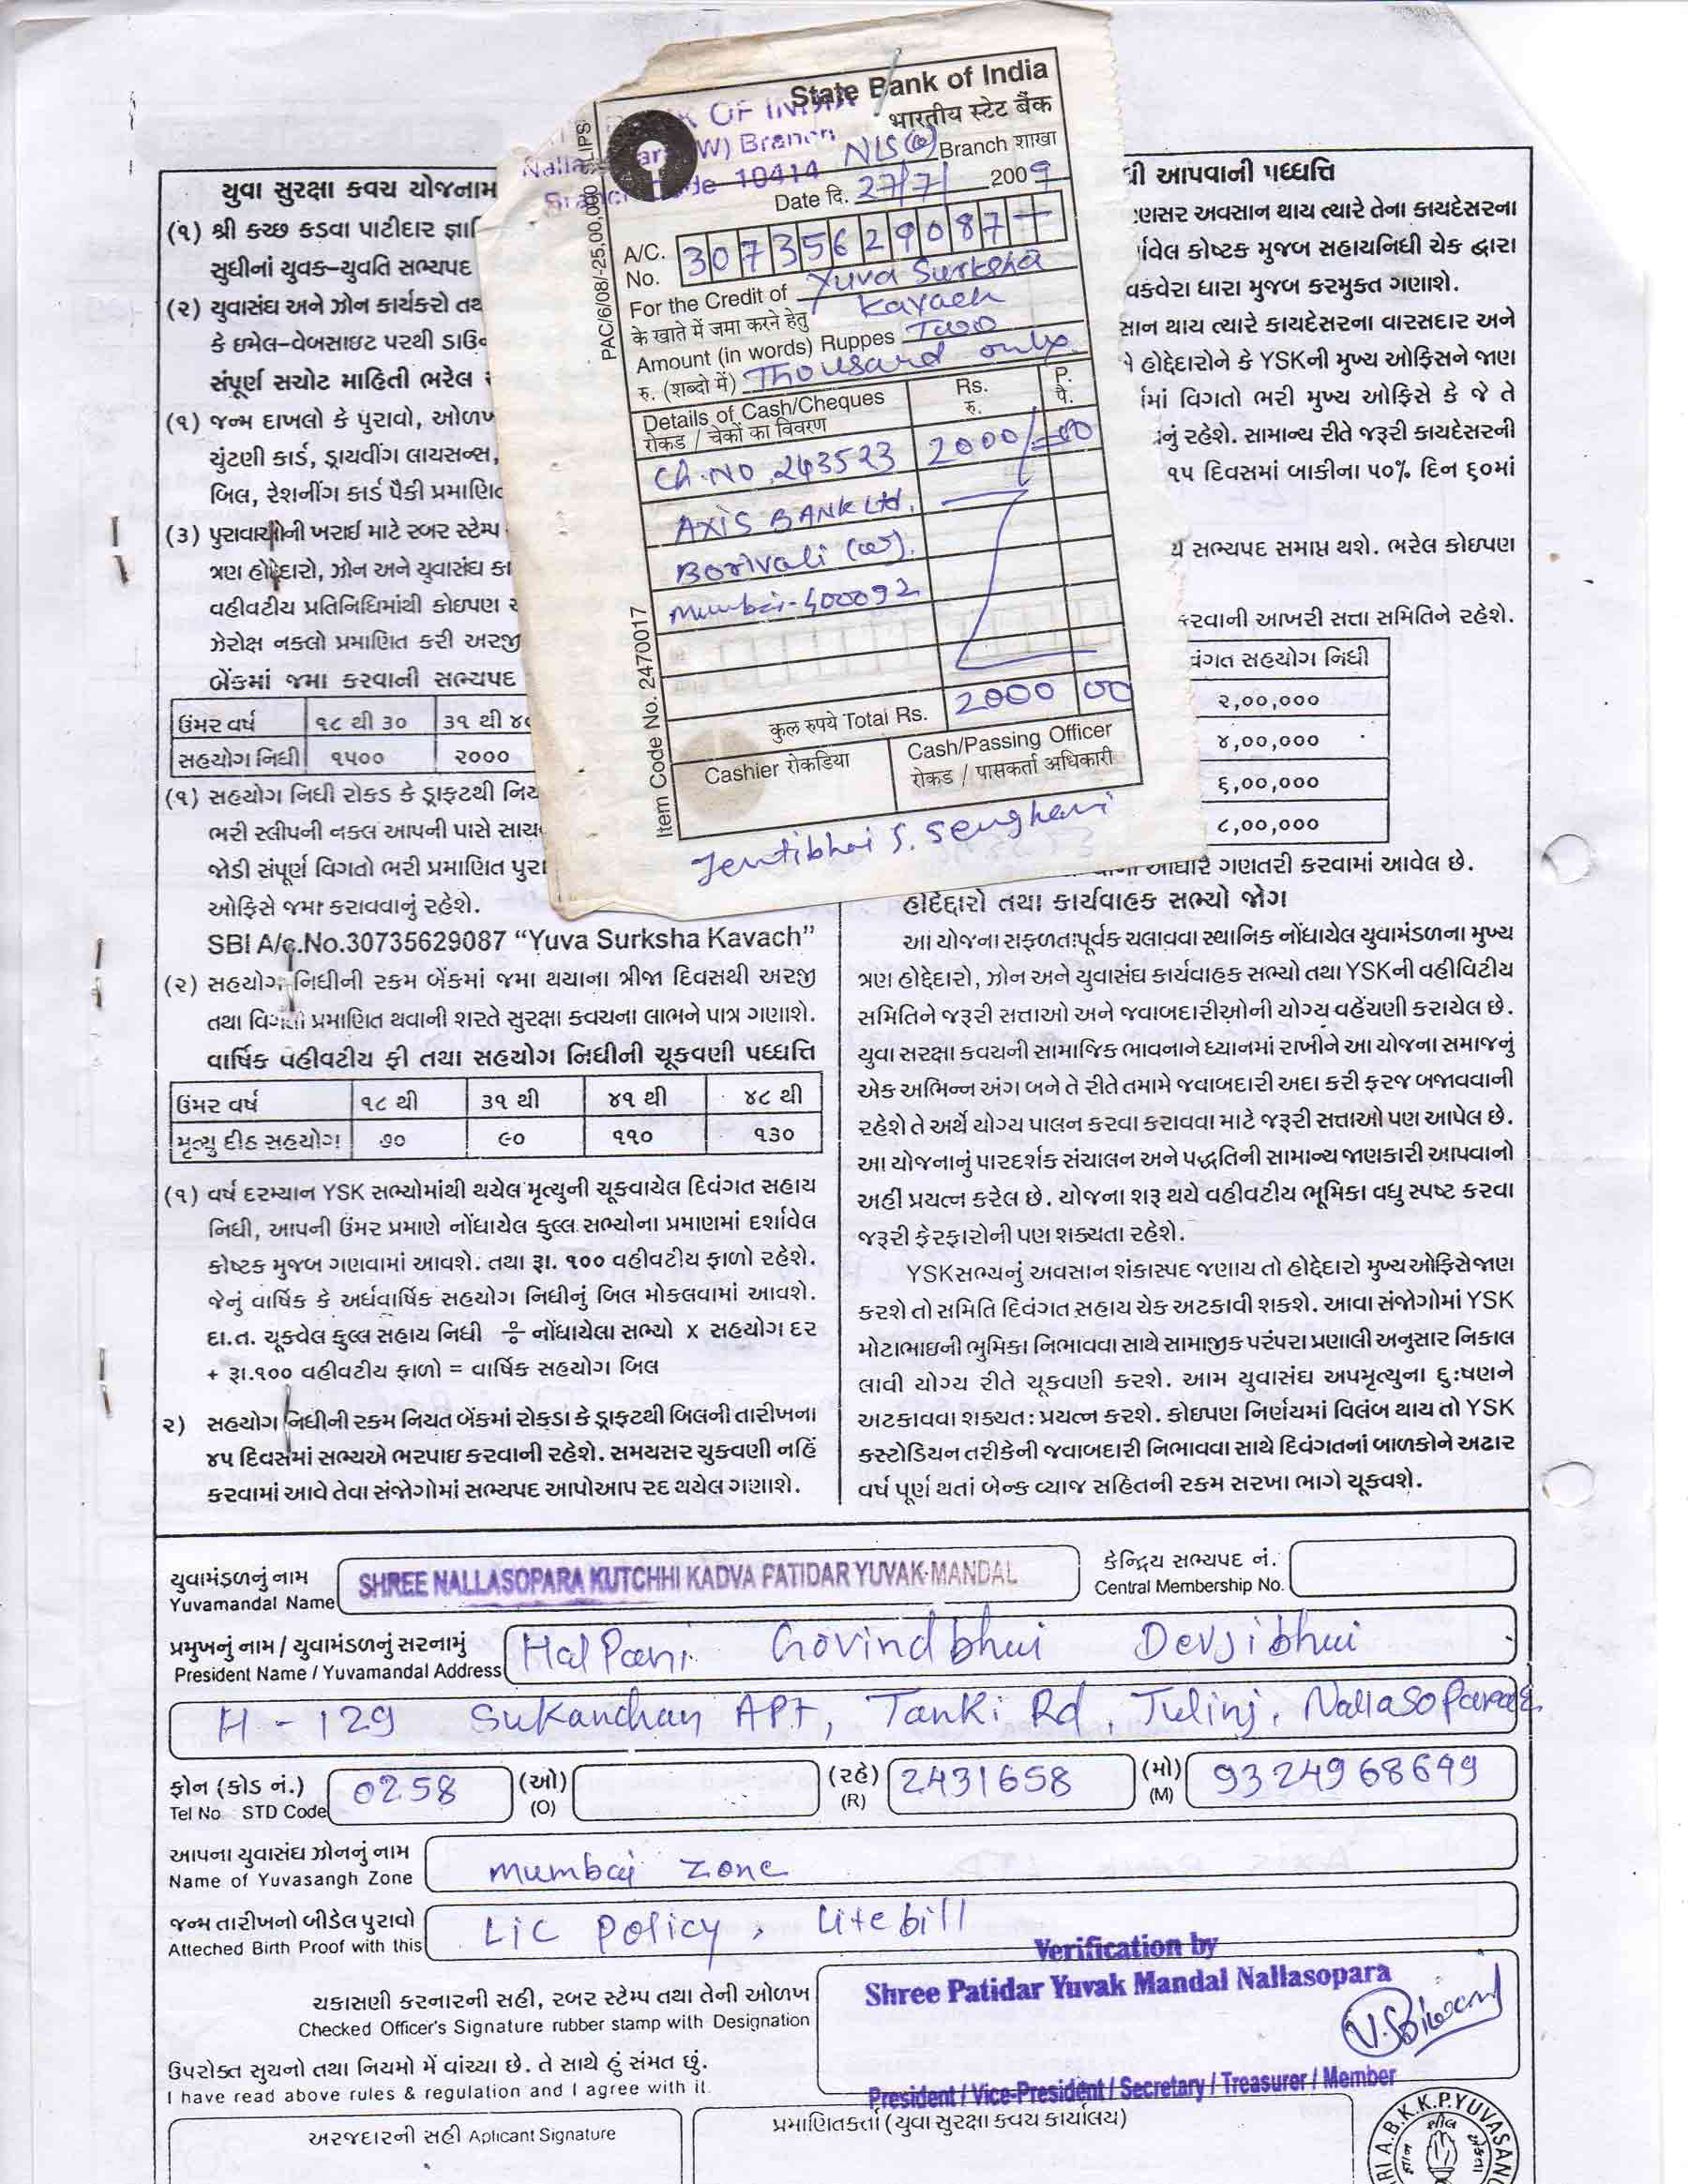 State Bank of India
भारतीय स्टेट बैंक
NLS(w) Branch शाखा
Branch Code 10414
Date दि. 27/7/ 2009
PAC/6/08/-25,00,000 SLIPS
A/C. No. 30735629087
For the Credit of Yuva Surksha
के खाते में जमा करने हेतु Kavach
Amount (in words) Ruppes Two
रु. (शब्दो में) Thousand only.
Details of Cash/Cheques Rs. P.
रोकड / चेकों का विवरण रु. पै.
Ch.No. 243523 2000/=00
AXIS BANK Ltd.
Borivali (w).
Mumbai-400092
Item Code No. 2470017
कुल रुपये Total Rs. 2000 00
Cashier रोकडिया
Cash/Passing Officer
रोकड / पासकर्ता अधिकारी
Jentibhai S. Senghani
યુવા સુરક્ષા કવચ યોજનામ
(૧) શ્રી કચ્છ કડવા પાટીદાર જ્ઞાતિ
સુધીનાં યુવક-યુવતિ સભ્યપદ
(૨) યુવાસંઘ અને ઝોન કાર્યકરો તથ
કે ઇમેલ-વેબસાઇટ પરથી ડાઉન
સંપૂર્ણ સચોટ માહિતી ભરેલ
(૧) જન્મ દાખલો કે પુરાવો, ઓળખ
ચુંટણી કાર્ડ, ડ્રાયવીંગ લાયસન્સ,
બિલ, રેશનીંગ કાર્ડ પૈકી પ્રમાણિત
(૩) પુરાવાઓની ખરાઈ માટે રબર સ્ટેમ્પ
ત્રણ હોદ્દેદારો, ઝોન અને યુવાસંઘ કા
વહીવટીય પ્રતિનિધિમાંથી કોઇપણ
ઝેરોક્ષ નકલો પ્રમાણિત કરી અરજી
બેંકમાં જમા કરવાની સભ્યપદ
ઉંમર વર્ષ ૧૮ થી ૩૦ ૩૧ થી ૪૦
સહયોગ નિધી ૧૫૦૦ ૨૦૦૦
(૧) સહયોગ નિધી રોકડ કે ડ્રાફટથી નિય
ભરી સ્લીપની નકલ આપની પાસે સાચ
જોડી સંપૂર્ણ વિગતો ભરી પ્રમાણિત પુરા
ઓફિસે જમા કરાવવાનું રહેશે.
SBI A/c.No.30735629087 "Yuva Surksha Kavach"
(૨) સહયોગ નિધીની રકમ બેંકમાં જમા થયાના ત્રીજા દિવસથી અરજી
તથા વિગતો પ્રમાણિત થવાની શરતે સુરક્ષા કવચના લાભને પાત્ર ગણાશે.
વાર્ષિક વહીવટીય ફી તથા સહયોગ નિધીની ચૂકવણી પધ્ધતિ
ઉંમર વર્ષ ૧૮ થી ૩૧ થી ૪૧ થી ૪૮ થી
મૃત્યુ દીઠ સહયોગ ૭૦ ૯૦ ૧૧૦ ૧૩૦
(૧) વર્ષ દરમ્યાન YSK સભ્યોમાંથી થયેલ મૃત્યુની ચૂકવાયેલ દિવંગત સહાય
નિધી, આપની ઉંમર પ્રમાણે નોંધાયેલ કુલ્લ સભ્યોના પ્રમાણમાં દર્શાવેલ
કોષ્ટક મુજબ ગણવામાં આવશે. તથા રૂા. ૧૦૦ વહીવટીય ફાળો રહેશે.
જેનું વાર્ષિક કે અર્ધવાર્ષિક સહયોગ નિધીનું બિલ મોકલવામાં આવશે.
દા.ત. ચૂકવેલ કુલ્લ સહાય નિધી ÷ નોંધાયેલા સભ્યો x સહયોગ દર
+ રૂા.૧૦૦ વહીવટીય ફાળો = વાર્ષિક સહયોગ બિલ
૨) સહયોગ નિધીની રકમ નિયત બેંકમાં રોકડા કે ડ્રાફટથી બિલની તારીખના
૪૫ દિવસમાં સભ્યએ ભરપાઇ કરવાની રહેશે. સમયસર ચુકવણી નહિં
કરવામાં આવે તેવા સંજોગોમાં સભ્યપદ આપોઆપ રદ થયેલ ગણાશે.
ધી આપવાની પધ્ધતિ
ણસર અવસાન થાય ત્યારે તેના કાયદેસરના
ાવેલ કોષ્ટક મુજબ સહાયનિધી ચેક દ્વારા
વકવેરા ધારા મુજબ કરમુક્ત ગણાશે.
સાન થાય ત્યારે કાયદેસરના વારસદાર અને
હોદ્દેદારોને કે YSKની મુખ્ય ઓફિસને જાણ
માં વિગતો ભરી મુખ્ય ઓફિસે કે જે તે
નું રહેશે. સામાન્ય રીતે જરૂરી કાયદેસરની
૧૫ દિવસમાં બાકીના ૫૦% દિન ૬૦માં
ય સભ્યપદ સમાપ્ત થશે. ભરેલ કોઇપણ
કરવાની આખરી સત્તા સમિતિને રહેશે.
વંગત સહયોગ નિધી
૨,૦૦,૦૦૦
૪,૦૦,૦૦૦
૬,૦૦,૦૦૦
૮,૦૦,૦૦૦
આધારે ગણતરી કરવામાં આવેલ છે.
હોદેદ્દારો તથા કાર્યવાહક સભ્યો જોગ
આ યોજના સફળતાપૂર્વક ચલાવવા સ્થાનિક નોંધાયેલ યુવામંડળના મુખ્ય
ત્રણ હોદ્દેદારો, ઝોન અને યુવાસંઘ કાર્યવાહક સભ્યો તથા YSKની વહીવિટીય
સમિતિને જરૂરી સત્તાઓ અને જવાબદારીઓની યોગ્ય વહેંચણી કરાયેલ છે.
યુવા સરક્ષા કવચની સામાજિક ભાવનાને ધ્યાનમાં રાખીને આ યોજના સમાજનું
એક અભિન્ન અંગ બને તે રીતે તમામે જવાબદારી અદા કરી ફરજ બજાવવાની
રહેશે તે અર્થે યોગ્ય પાલન કરવા કરાવવા માટે જરૂરી સત્તાઓ પણ આપેલ છે.
આ યોજનાનું પારદર્શક સંચાલન અને પદ્ધતિની સામાન્ય જાણકારી આપવાનો
અહીં પ્રયત્ન કરેલ છે. યોજના શરૂ થયે વહીવટીય ભૂમિકા વધુ સ્પષ્ટ કરવા
જરૂરી ફેરફારોની પણ શક્યતા રહેશે.
YSKસભ્યનું અવસાન શંકાસ્પદ જણાય તો હોદ્દેદારો મુખ્ય ઓફિસે જાણ
કરશે તો સમિતિ દિવંગત સહાય ચેક અટકાવી શકશે. આવા સંજોગોમાં YSK
મોટાભાઇની ભુમિકા નિભાવવા સાથે સામાજીક પરંપરા પ્રણાલી અનુસાર નિકાલ
લાવી યોગ્ય રીતે ચૂકવણી કરશે. આમ યુવાસંઘ અપમૃત્યુના દુ:ષણને
અટકાવવા શક્યત: પ્રયત્ન કરશે. કોઇપણ નિર્ણયમાં વિલંબ થાય તો YSK
કસ્ટોડિયન તરીકેની જવાબદારી નિભાવવા સાથે દિવંગતનાં બાળકોને અઢાર
વર્ષ પૂર્ણ થતાં બેન્ક વ્યાજ સહિતની રકમ સરખા ભાગે ચૂકવશે.
યુવામંડળનું નામ SHREE NALLASOPARA KUTCHHI KADVA PATIDAR YUVAK-MANDAL કેન્દ્રિય સભ્યપદ નં.
Yuvamandal Name Central Membership No.
પ્રમુખનું નામ / યુવામંડળનું સરનામું HalPani Govindbhai Devjibhai
President Name / Yuvamandal Address
H - 129 Sukanchan APt, Tanki Rd, Tulinj, Nallasopara E.
ફોન (કોડ નં.) 0258 (ઓ) (રહે) 2431658 (મો) 9324968699
Tel No STD Code (O) (R) (M)
આપના યુવાસંઘ ઝોનનું નામ mumbai zone
Name of Yuvasangh Zone
જન્મ તારીખનો બીડેલ પુરાવો LiC Policy, Litebill
Atteched Birth Proof with this
Verification by
Shree Patidar Yuvak Mandal Nallasopara
ચકાસણી કરનારની સહી, રબર સ્ટેમ્પ તથા તેની ઓળખ
Checked Officer's Signature rubber stamp with Designation
ઉપરોક્ત સુચનો તથા નિયમો મેં વાંચ્યા છે. તે સાથે હું સંમત છું.
I have read above rules & regulation and I agree with it.
President / Vice-President / Secretary / Treasurer / Member
અરજદારની સહી Aplicant Signature
પ્રમાણિતકર્તા (યુવા સુરક્ષા કવચ કાર્યાલય)
A.B.K.K.P.YUVASAN